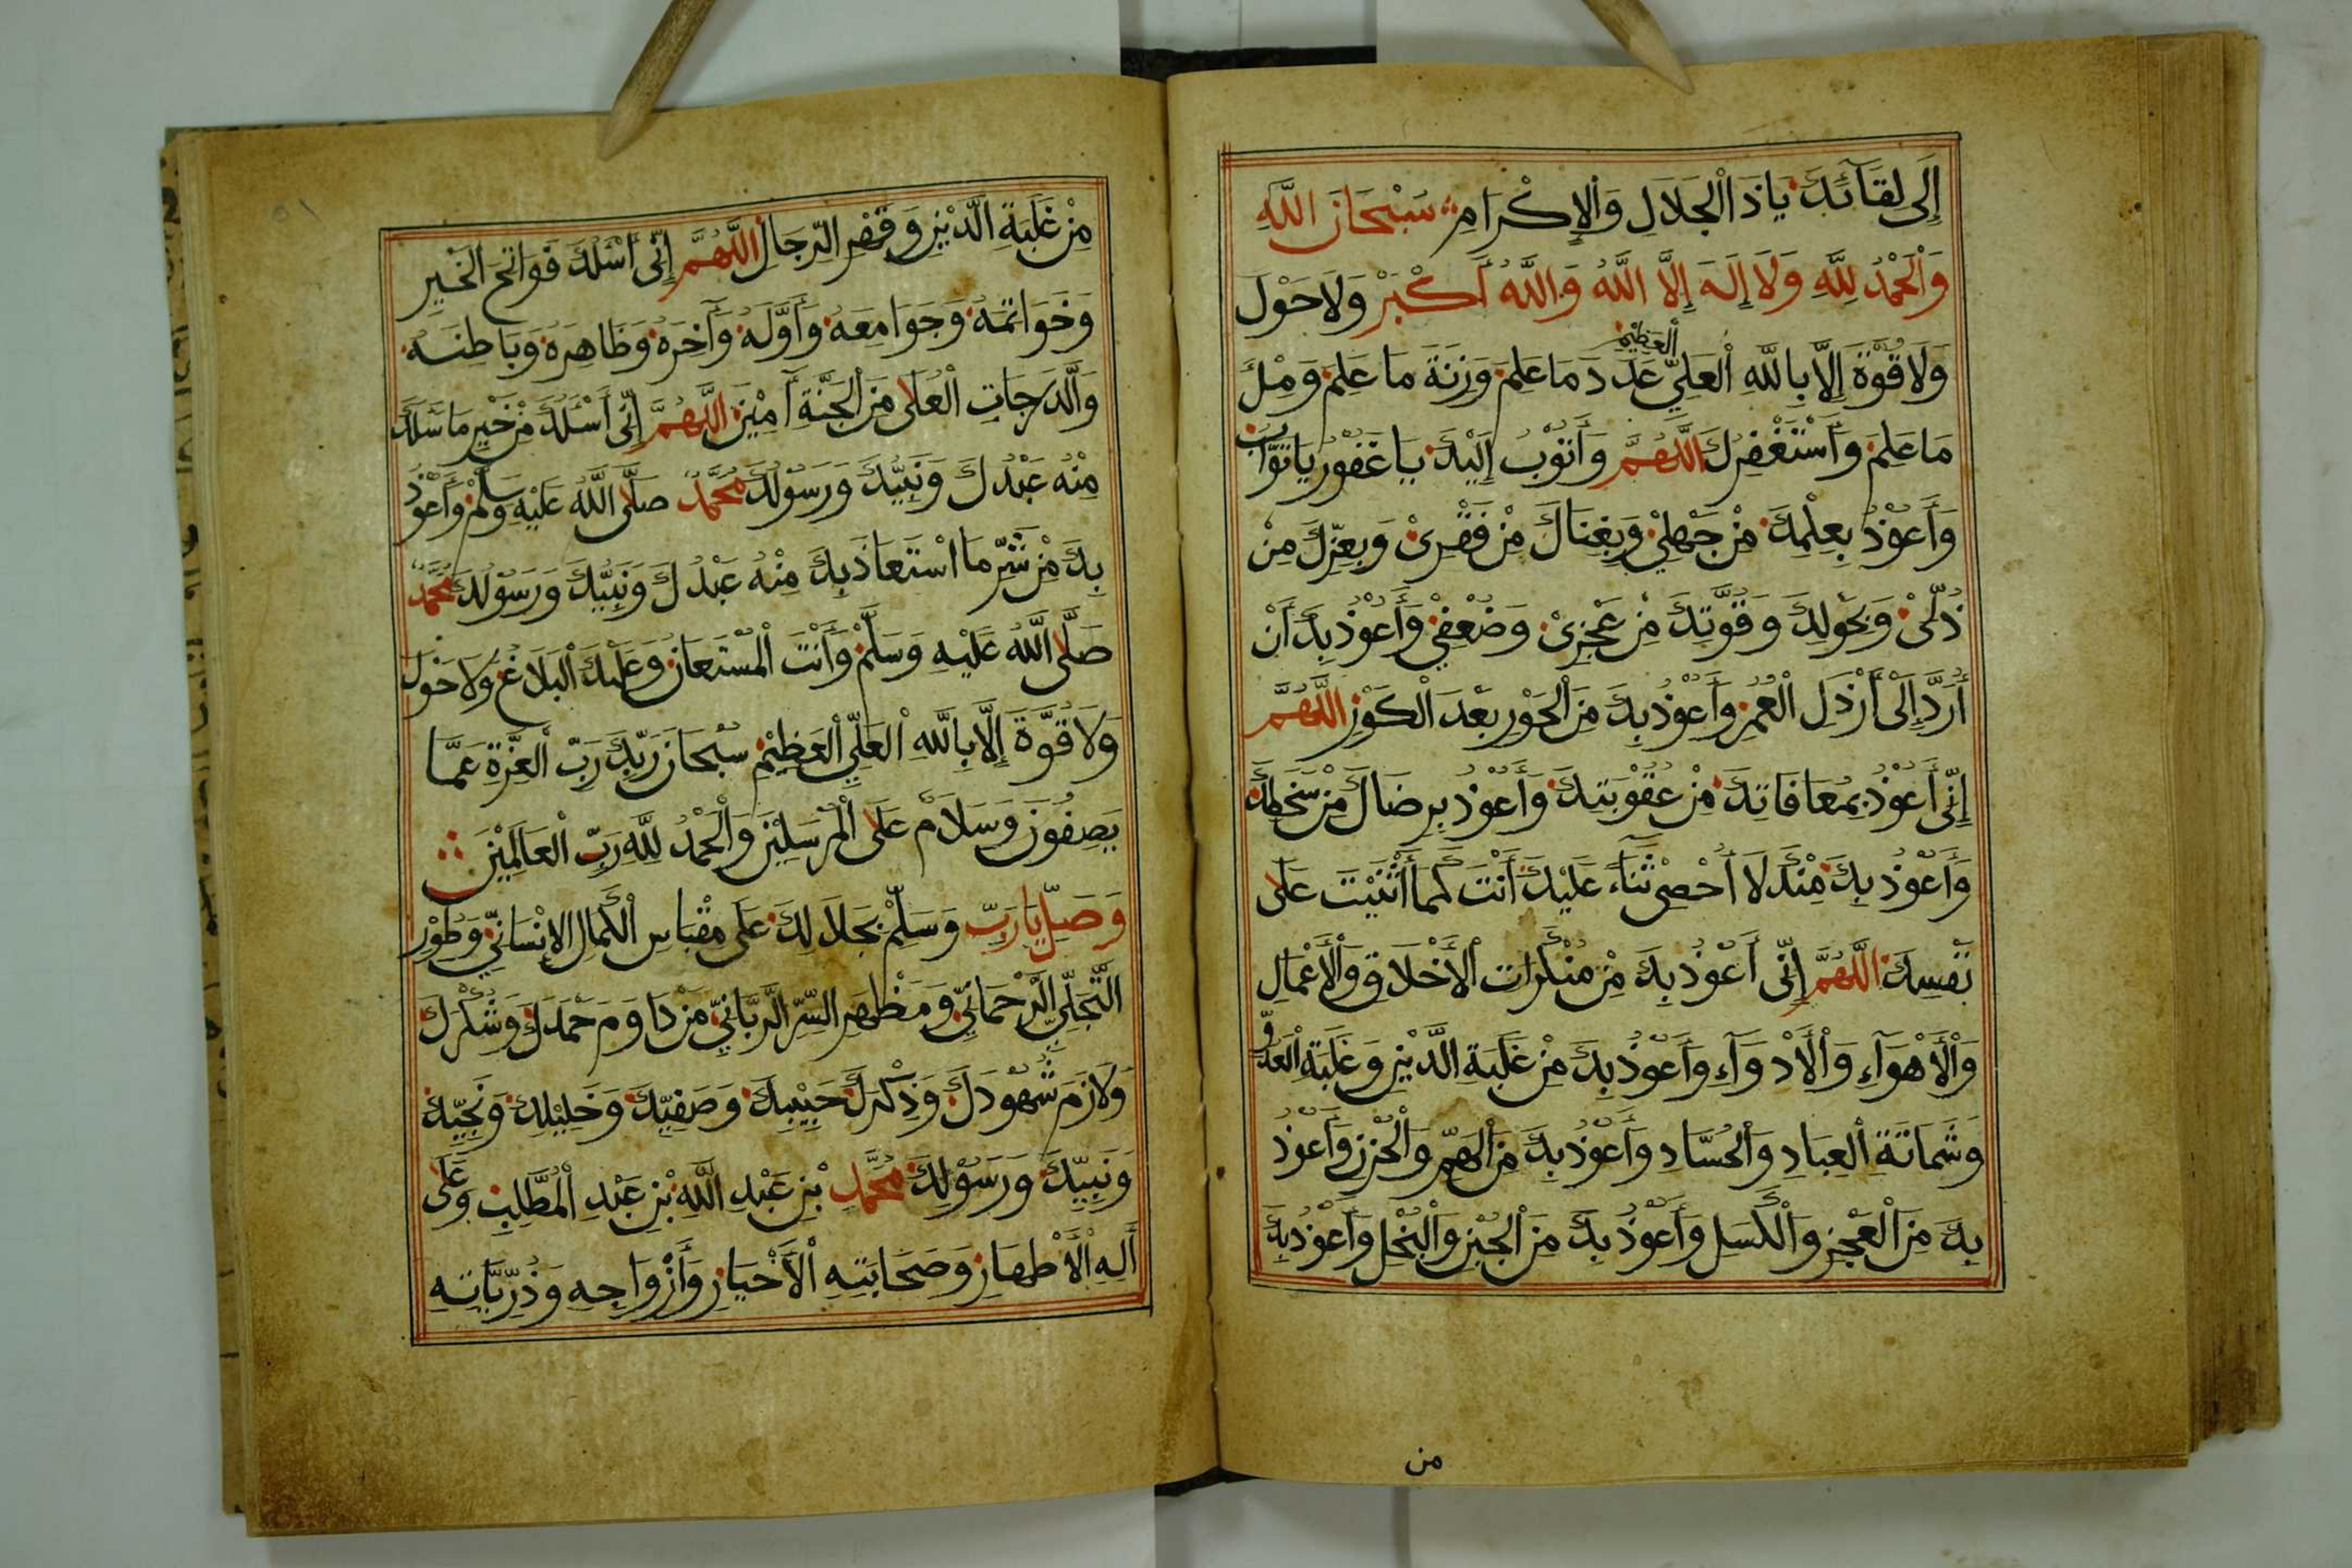 إِلَى لِقَائِكَ يَاذَا الْجَلَالِ وَالْإِكْرَامِ سُبْحَانَ اللَّهِ
وَالْحَمْدُ لِلَّهِ وَلَا إِلَهَ إِلَّا اللَّهُ وَاللَّهُ أَكْبَرْ وَلَا حَوْلَ
وَلَا قُوَّةَ إِلَّا بِاللَّهِ الْعَلِيِّ الْعَظِيْمِ عَدَدَ مَا عَلِمَ وَزِنَةَ مَا عَلِمَ وَمِلْءَ
مَا عَلِمَ وَأَسْتَغْفِرُكَ اللَّهُمَّ وَأَتُوْبُ إِلَيْكَ يَا غَفُوْرُ يَا تَوَّابُ
وَأَعُوْذُ بِعِلْمِكَ مِنْ جَهْلِيْ وَبِغِنَاكَ مِنْ فَقْرِيْ وَبِعِزِّكَ مِنْ
ذُلِّيْ وَبِحَوْلِكَ وَقُوَّتِكَ مِنْ عَجْزِيْ وَضُعْفِيْ وَأَعُوْذُ بِكَ أَنْ
أُرَدَّ إِلَى أَرْذَلِ الْعُمُرِ وَأَعُوْذُ بِكَ مِنَ الْحَوْرِ بَعْدَ الْكَوْرِ اللَّهُمَّ
إِنِّي أَعُوْذُ بِمُعَافَاتِكَ مِنْ عُقُوْبَتِكَ وَأَعُوْذُ بِرِضَاكَ مِنْ سَخَطِكَ
وَأَعُوْذُ بِكَ مِنْكَ لَا أُحْصِيْ ثَنَاءً عَلَيْكَ أَنْتَ كَمَا أَثْنَيْتَ عَلَى
نَفْسِكَ اللَّهُمَّ إِنِّي أَعُوْذُ بِكَ مِنْ مُنْكَرَاتِ الْأَخْلَاقِ وَالْأَعْمَالِ
وَالْأَهْوَآءِ وَالْأَدْوَآءِ وَأَعُوْذُ بِكَ مِنْ غَلَبَةِ الدَّيْنِ وَغَلَبَةِ الْعَدُوِّ
وَشَمَاتَةِ الْعِبَادِ وَالْحُسَّادِ وَأَعُوْذُ بِكَ مِنَ الْهَمِّ وَالْحُزْنِ وَأَعُوْذُ
بِكَ مِنَ الْعَجْزِ وَالْكَسَلِ وَأَعُوْذُ بِكَ مِنَ الْجُبْنِ وَالْبُخْلِ وَأَعُوْذُ بِكَ
من
مِنْ غَلَبَةِ الدَّيْنِ وَقَهْرِ الرِّجَالِ اللَّهُمَّ إِنِّي أَسْئَلُكَ فَوَاتِحَ الْخَيْرِ
وَخَوَاتِمَهُ وَجَوَامِعَهُ وَأَوَّلَهُ وَآخِرَهُ وَظَاهِرَهُ وَبَاطِنَهُ
وَالدَّرَجَاتِ الْعُلَى مِنَ الْجَنَّةِ آمِيْنَ اللَّهُمَّ إِنِّي أَسْئَلُكَ مِنْ خَيْرِ مَا سَئَلَكَ
مِنْهُ عَبْدُكَ وَنَبِيُّكَ وَرَسُوْلُكَ مُحَمَّدٌ صَلَّى اللَّهُ عَلَيْهِ وَسَلَّمْ وَأَعُوْذُ
بِكَ مِنْ شَرِّ مَا اسْتَعَاذَ بِكَ مِنْهُ عَبْدُكَ وَنَبِيُّكَ وَرَسُوْلُكَ مُحَمَّدٌ
صَلَّى اللَّهُ عَلَيْهِ وَسَلَّمْ وَأَنْتَ الْمُسْتَعَانُ وَعَلَيْكَ الْبَلَاغُ وَلَا حَوْلَ
وَلَا قُوَّةَ إِلَّا بِاللَّهِ الْعَلِيِّ الْعَظِيْمِ سُبْحَانَ رَبِّكَ رَبِّ الْعِزَّةِ عَمَّا
يَصِفُوْنَ وَسَلَامٌ عَلَى الْمُرْسَلِيْنَ وَالْحَمْدُ لِلَّهِ رَبِّ الْعَالَمِيْنَ
وَصَلِّ يَارَبِّ وَسَلِّمْ بِجَلَالِكَ عَلَى مِقْبَاسِ الْكَمَالِ الْإِنْسَانِيِّ وَطُوْرِ
التَّجَلِّي الرَّحْمَانِيِّ وَمَظْهَرِ السِّرِّ الرَّبَّانِيِّ مَنْ دَاوَمَ حَمْدَكَ وَشُكْرَكَ
وَلَازَمَ شُهُوْدَكَ وَذِكْرَكَ حَبِيْبِكَ وَصَفِيِّكَ وَخَلِيْلِكَ وَنَجِيِّكَ
وَنَبِيِّكَ وَرَسُوْلِكَ مُحَمَّدِ بْنِ عَبْدِ اللَّهِ بْنِ عَبْدِ الْمُطَّلِبِ وَعَلَى
أَلِهِ الْأَطْهَارِ وَصَحَابَتِهِ الْأَخْيَارِ وَأَزْوَاجِهِ وَذُرِّيَّاتِهِ